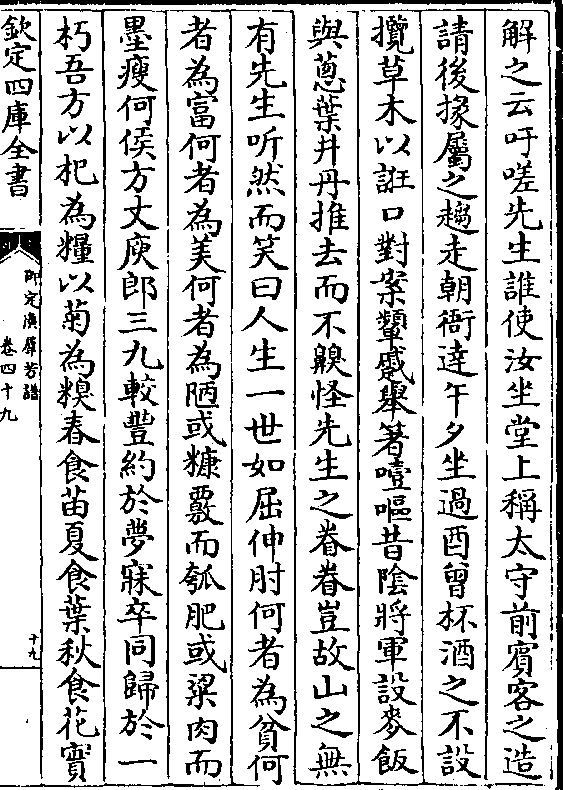 解之云吁嗟先生誰使汝坐堂上稱太守前賓客之造
請後掾屬之趨走朝衙達午夕坐過酉曾杯酒之不設
攬草木以誑口對案顰蹙舉箸噎嘔昔陰將軍設麥飯
與蔥葉井丹推去而不齅怪先生之眷眷豈故山之無
有先生听然而笑曰人生一世如屈伸肘何者為貧何
者為富何者為美何者為陋或糠覈而瓠肥或粱肉而
墨瘦何侯方丈庾郎三九較豐約於夢寐卒同歸於一
朽吾方以杞為糧以菊為糗春食苗夏食葉秋食花實
欽定四庫全書
御定廣羣芳譜
卷四十九
十九